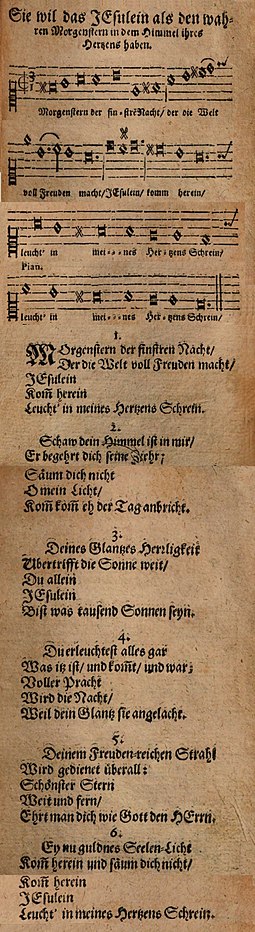 Sie wil das JEsulein als den wah-
ren Morgenstern in dem Himmel ihres
Hertzens haben.
Morgenstern der fin-strẽ Nacht/ der die Welt
voll Freuden macht/ JEsulein/ komm herein/
leucht' in mei- - - nes Her-tzens Schrein/
Pian.
leucht' in mei- - - nes Her-tzens Schrein/
1.
MOrgenstern der finstren Nacht/
Der die Welt voll Freuden macht/
JEsulein
Kom̃ herein
Leucht' in meines Hertzens Schrein.
2.
Schaw dein Himmel ist in mir/
Er begehrt dich seine Ziehr;
Säum dich nicht
O mein Licht/
Kom̃ kom̃ eh der Tag anbricht.
3.
Deines Glantzes Herrligkeit
Ubertrifft die Sonne weit/
Du allein
JEsulein
Bist was tausend Sonnen seyn.
4.
Du erleuchtest alles gar
Was itz ist/ und kom̃t/ und war;
Voller Pracht
Wird die Nacht/
Weil dein Glantz sie angelacht.
5.
Deinem Freuden-reichen Strahl
Wird gedienet überall:
Schönster Stern
Weit und fern/
Ehrt man dich wie Gott den HErrn.
6.
Ey nu güldnes Seelen-Licht
Kom̃ herein und säum dich nicht/
Kom̃ herein
JEsulein
Leucht' in meines Hertzens Schrein.